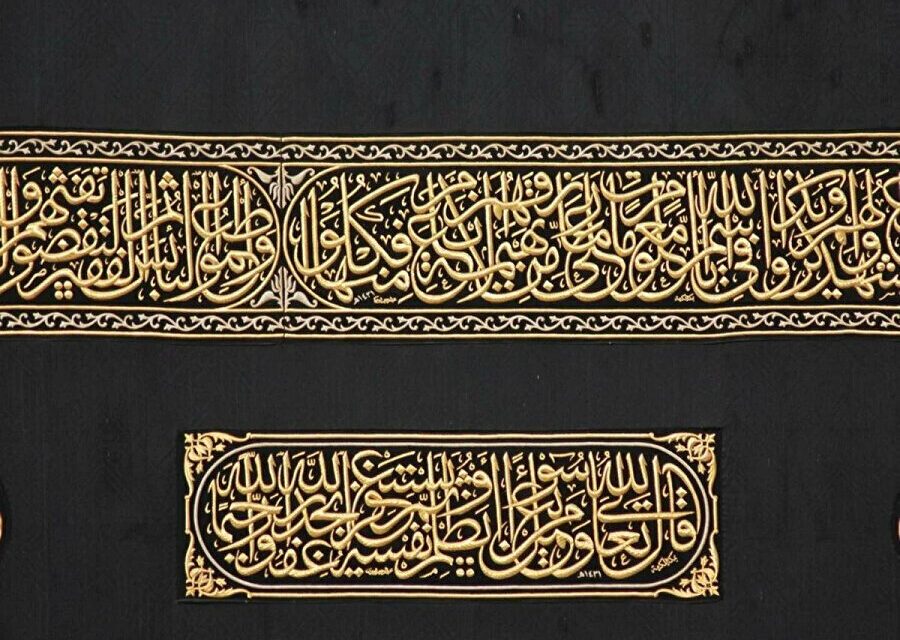 لهم ويذكروا اسم الله في أيام معلومات على ما رزقهم من بهيمة الأنعام فكلوا منها
وأطعموا البائس الفقير ثم ليقضوا تفثهم
١٤٣١هـ
قال الله تعالى ومن يعمل سوءا أو يظلم نفسه ثم يستغفر الله يجد الله غفورا رحيما
١٤٣١هـ